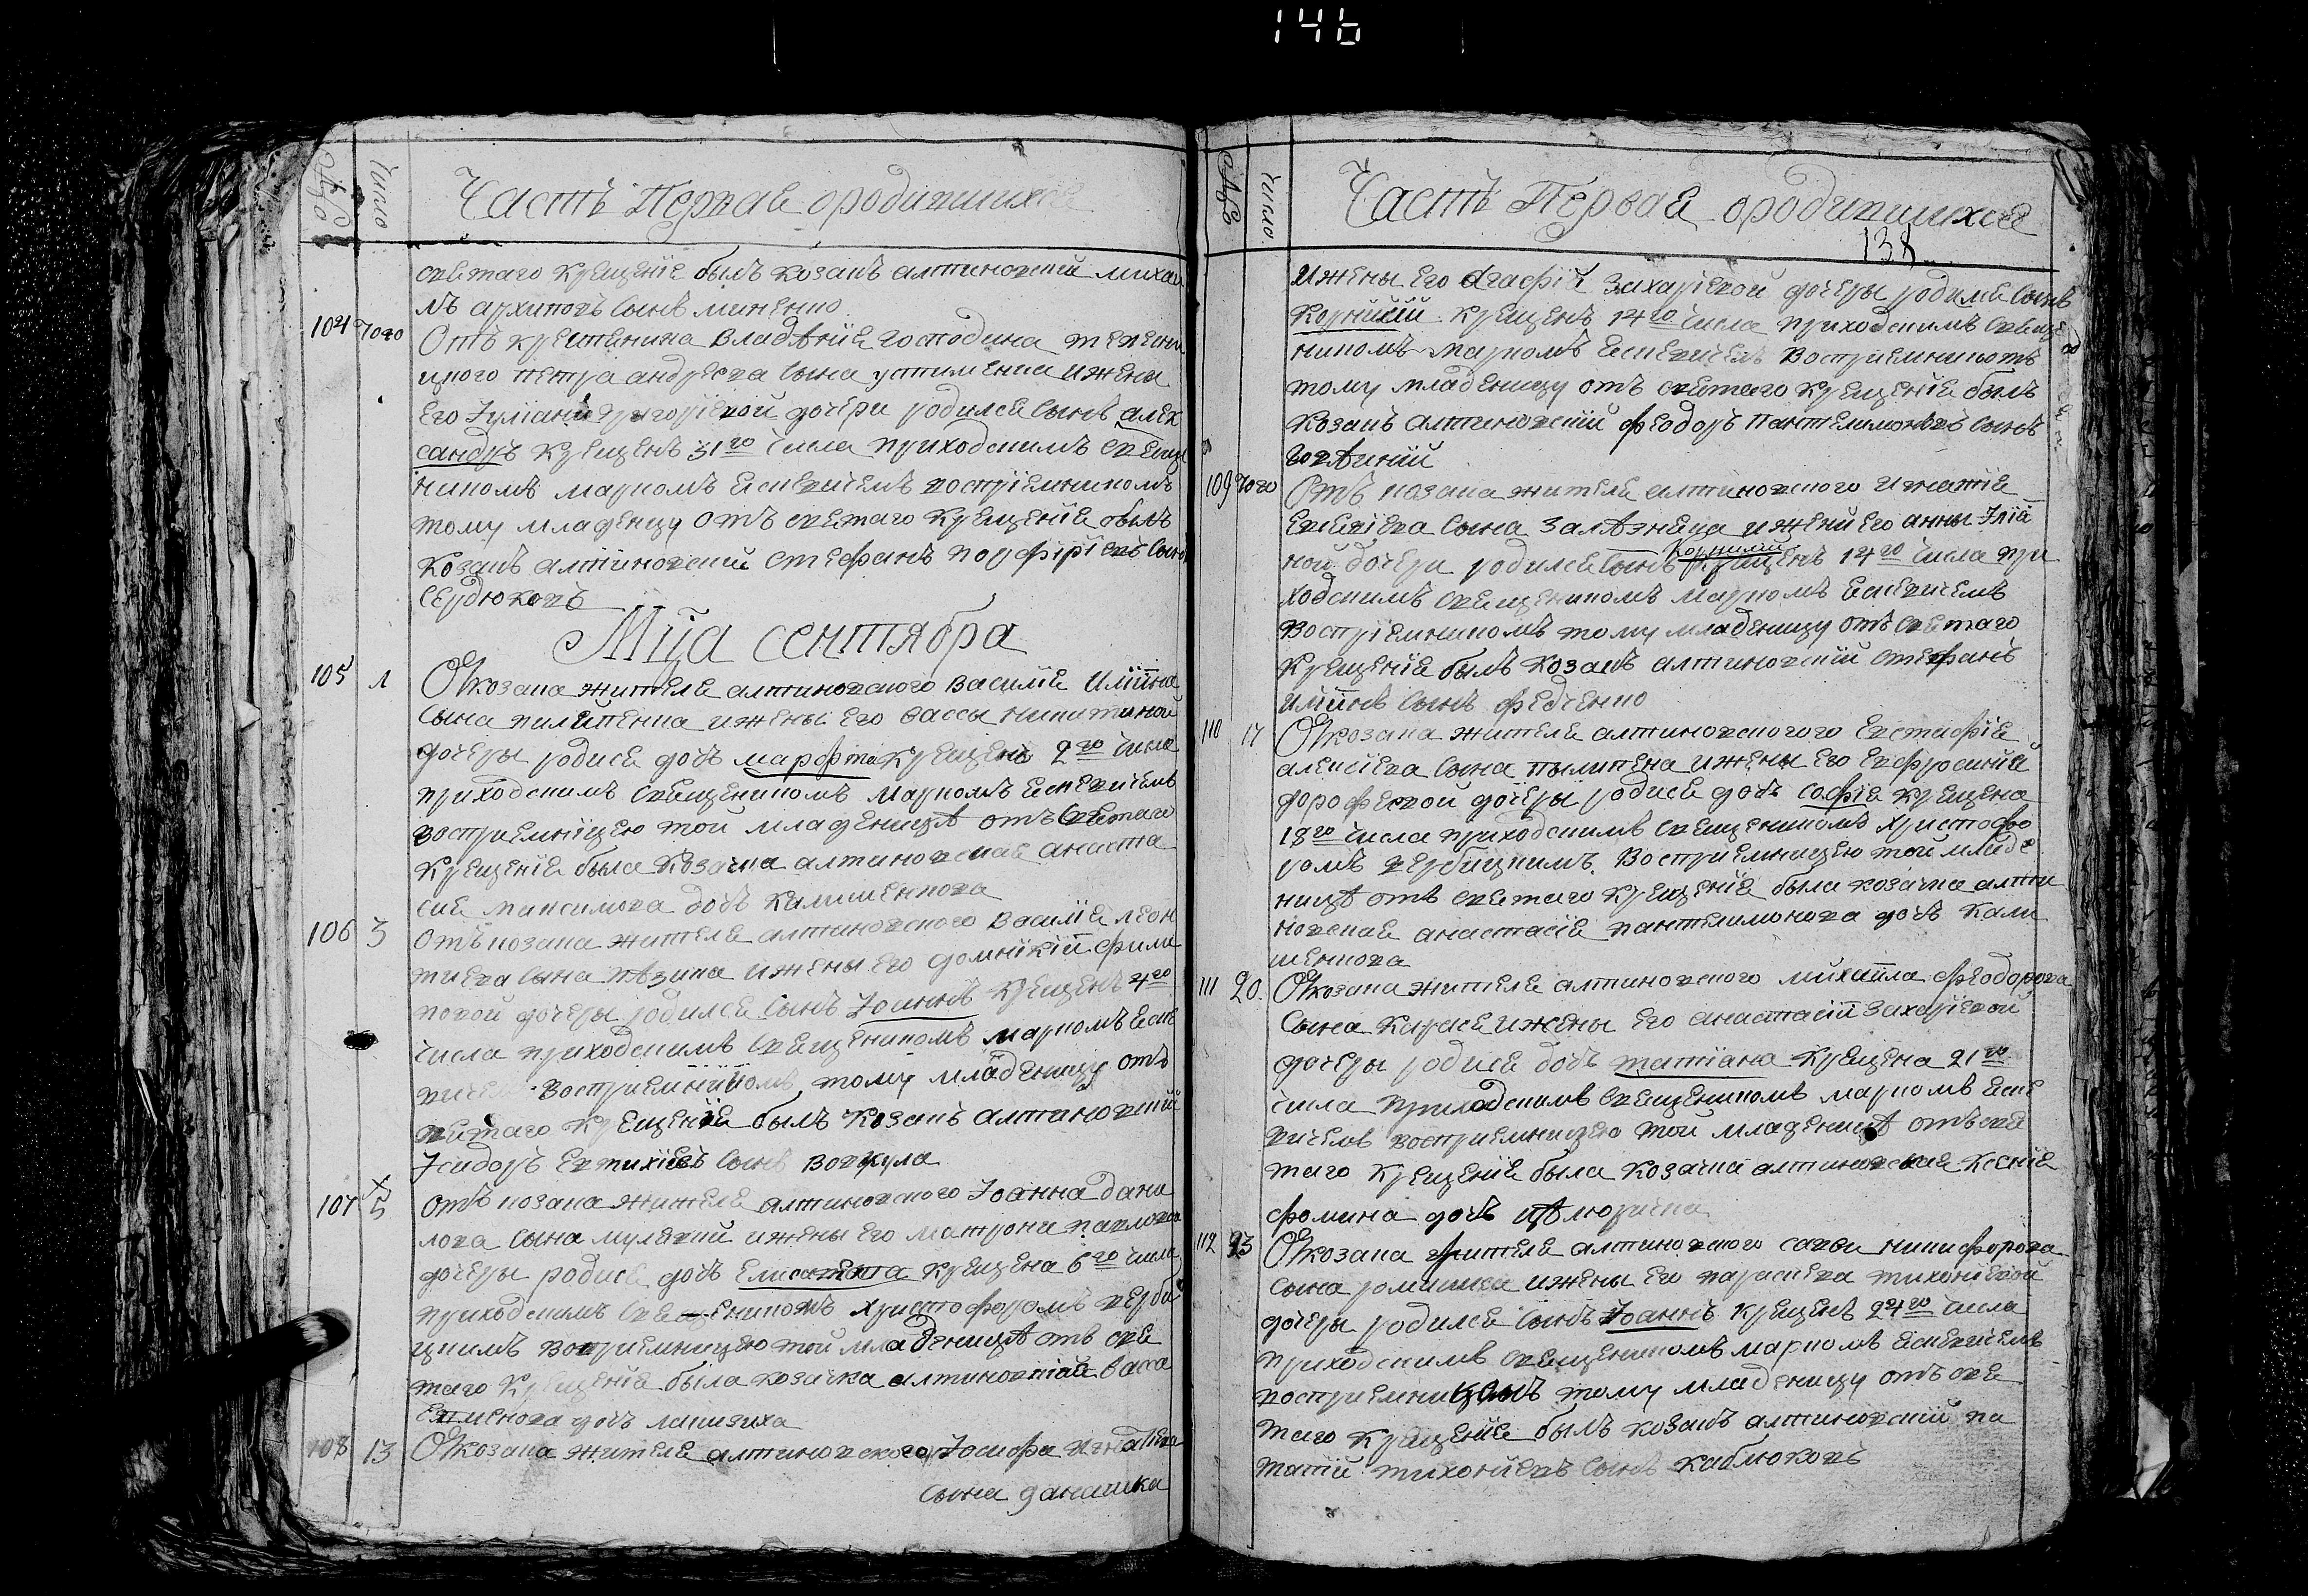 146
№ Число Часть Первая ородившихся
святаго крещенїя былъ козакъ алтиновскїй михаи
лъ архиповъ сынъ миненко
104 Того Отъ крестянина владѣнїя господина
цкого петра андреева сына устименка ижены
его Іулїани григорїевой дочери родился сынъ алек
сандръ крещенъ 31го числа приходскимъ свеще
никомъ маркомъ Еспевичемъ воспрїемникомъ
тому младенцу отъ святаго крещенїя былъ
козакъ алтиновскїй стефанъ порфірїевъ сынъ
сердюковъ
Мца сентября
105 1 От козака жителя алтиновского василїя иліина
сына пилипенка ижены его вассы никитиной
дочеры родися дочь марфта крещенъ 2го числа
приходскимъ священикомъ маркомъ Еспевичемъ
воспрїемницею той младеницѣ отъ святаго
крещенїя была козачка алтиновская анаста
сия максимова дочь калишенкова
106 3 Отъ козака жителя алтиновского василїя леон
тиева сына пѣзика ижены его домнікїи фили
повой дочеры родился сынъ Іоаннъ крещенъ 4го
числа приходскимъ священикомъ маркомъ Еспе
вичемъ воспрїемникомъ тому младеницу отъ
святаго крещенїя былъ козакъ алтиновскїй
Ісидоръ Евтихїевъ сынъ вовкула
107 5 Отъ козака жителя алтиновского Іоанна дани
лова сына мулявки ижены его матрони павловой
дочеры родися дочь Елисавета крещена 6го числа
приходскимъ священикомъ христофоромъ верби
цкимъ воспрїемницею той младеницѣ отъ свя
таго крещенїя была козачка алтиновская васса
дочь
108 13 От козака жителя алтиновского Іосифа игнатїева
сына данашка
№ Число. Часть Первая ородившихся
138
ижены его агафїи захарїевой дочеры родился сынъ
Корнилїй крещенъ 14го числа приходскимъ свяще
никомъ маркомъ Еспевичемъ воспрїемникомъ
тому младеницу отъ святаго крещенїя былъ
козакъ алтиновскїй феодоръ пантелимоновъ сынъ
109 Того Отъ козака жителя алтиновского игнатїя
евсевїева сына залѣзняка ижени его анны Ілїи
ной дочери родился сынъ Корнилїй крещенъ 14го числа при
ходскимъ священикомъ маркомъ Еспевичемъ
воспрїемникомъ тому младеницу отъ святаго
крещенїя былъ козакъ алтиновскїй стефанъ
иліинъ сынъ федченко
110 17 От козака жителя алтиновскогого Евстафїя
алексїева сына пылипенка ижены его Евфросинїи
дорофеевой дочеры родися дочь софїя крещена
18го числа приходскимъ священикомъ христофо
ромъ вербицкимъ. воспрїемницею той младе
ницѣ отъ святаго крещенїя была козачка алти
новская анастасїя пантелимонова дочь кали
шенкова
111 20. От козака жителя алтиновского михаила феодорова
сына карася ижены его анастасїи захарїевой
дочеры родися дочь татїана крещена 21го
числа приходскимъ священикомъ маркомъ Еспе
вичемъ воспрїемницею той младеницѣ отъ свя
таго крещенїя была козачка алтиновская ксенїя
фомина дочь
112 23 От козака жителя алтиновского савви никифорова
сына ромашка ижены его параскева тихонїевой
дочеры родился сынъ Іоаннъ крещенъ 24го числа
приходскимъ священикомъ маркомъ Еспевичемъ
воспрїемникомъ тому младеницу отъ свя
таго крещенїя былъ козакъ алтиновскїй по
тапїй тихонїевъ сынъ каблюковъ